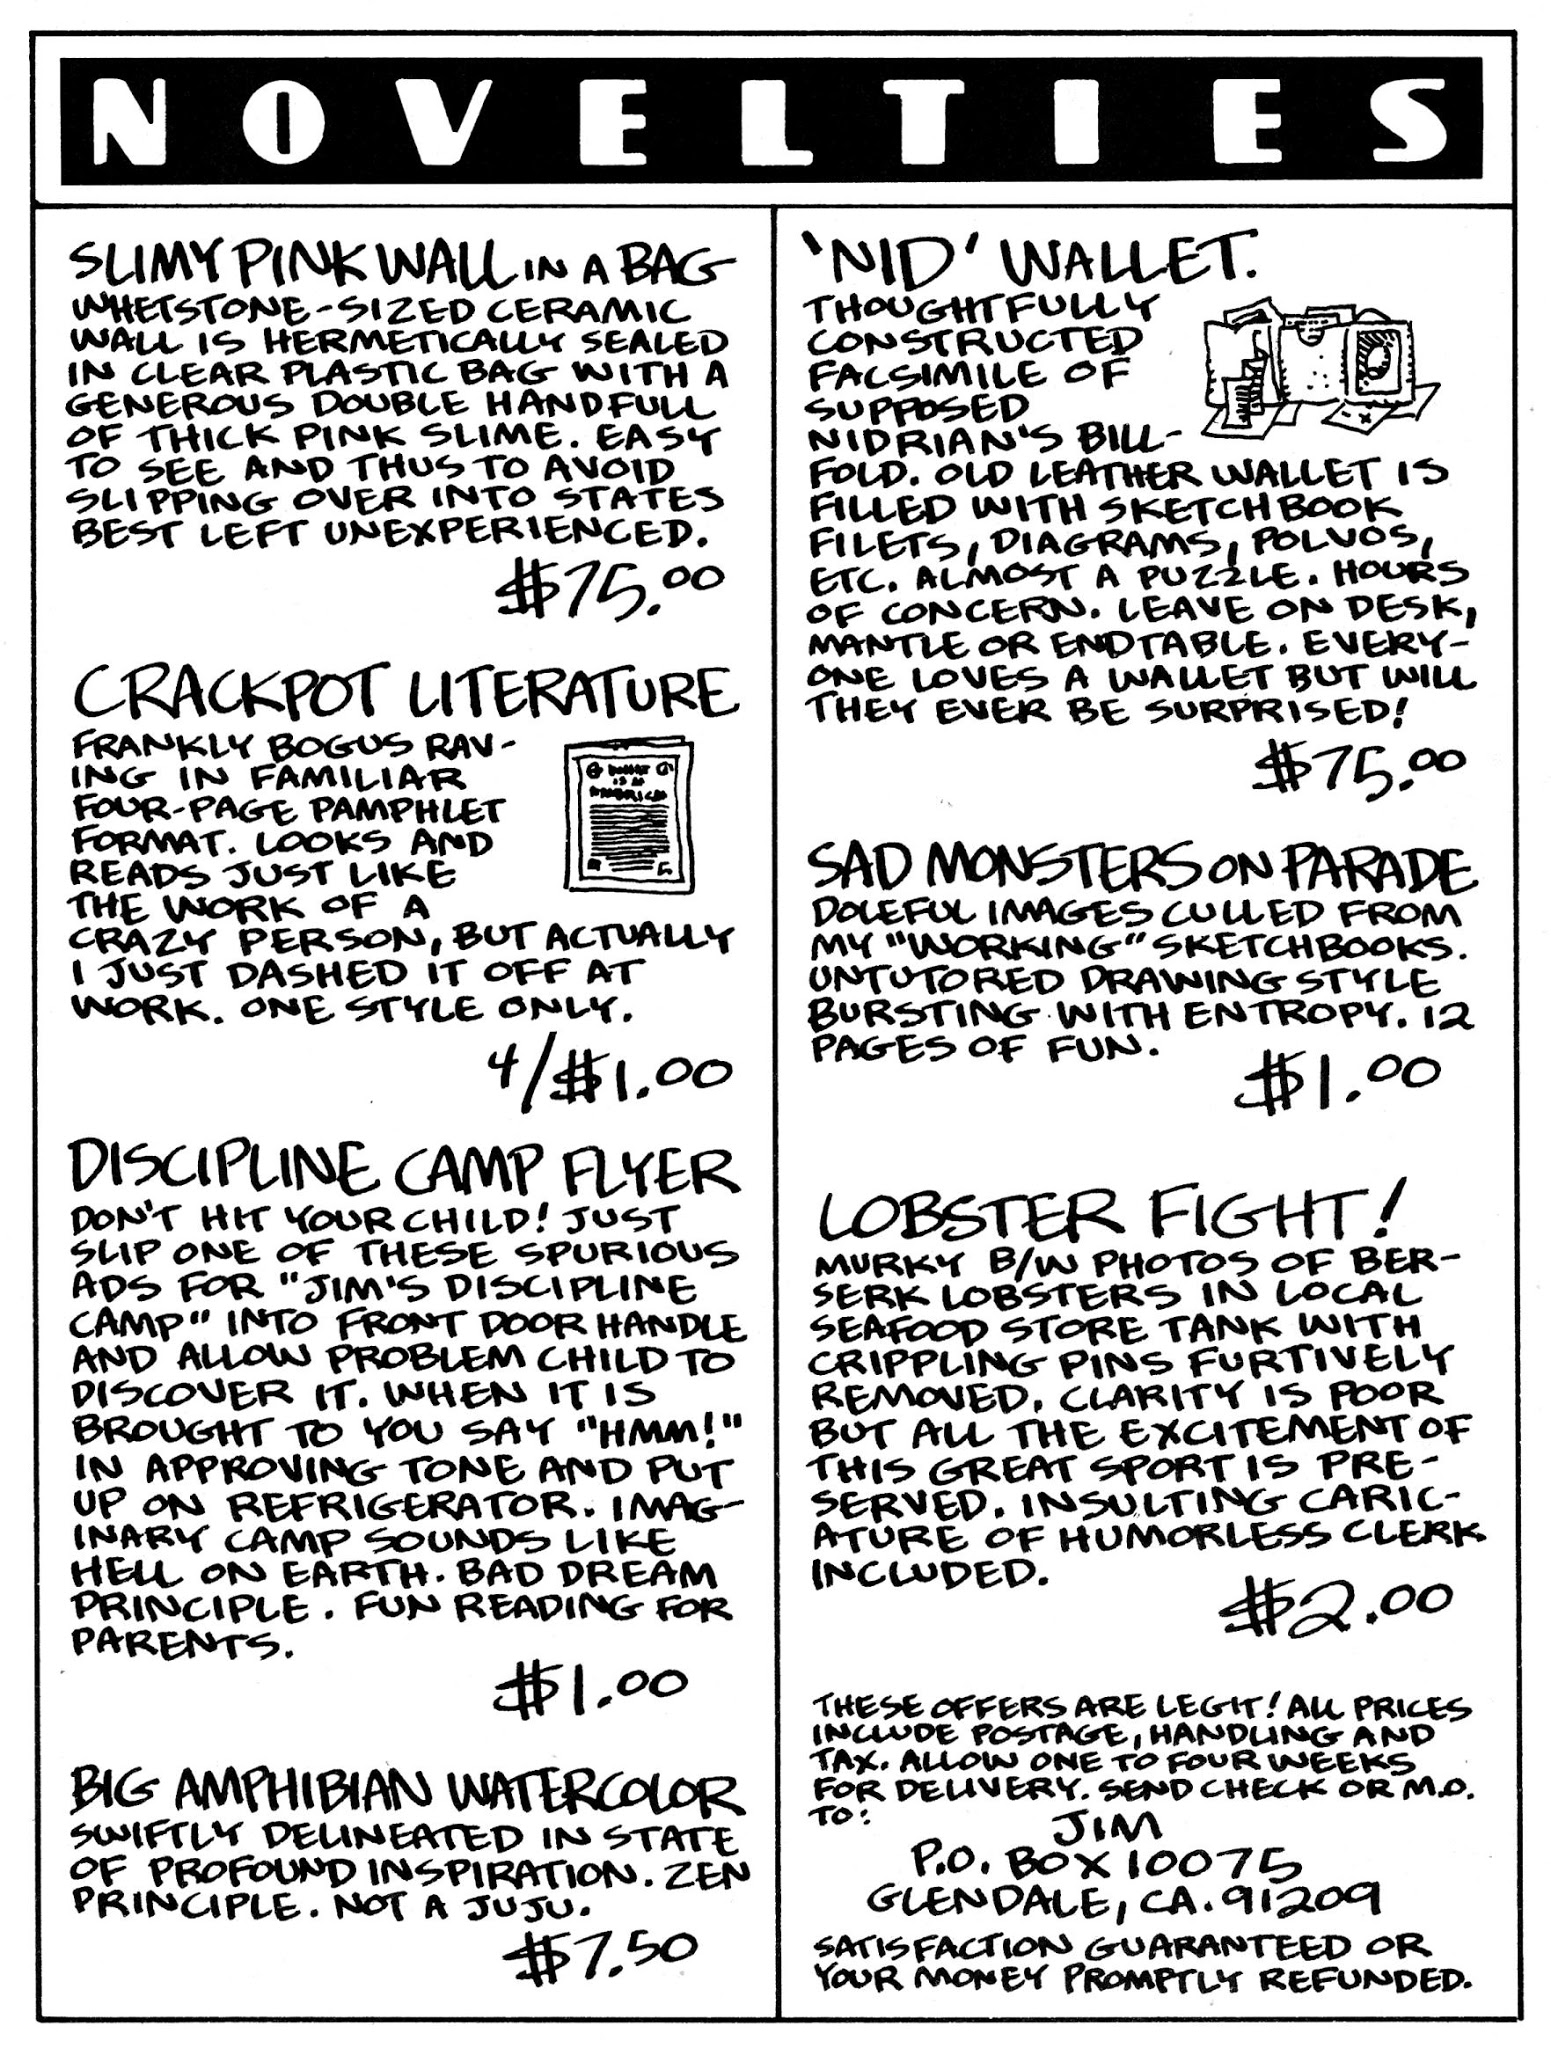 NOVELTIES
SLIMY PINK WALL IN A BAG
WHETSTONE-SIZED CERAMIC
WALL IS HERMETICALLY SEALED
IN CLEAR PLASTIC BAG WITH A
GENEROUS DOUBLE HANDFULL
OF THICK PINK SLIME. EASY
TO SEE AND THUS TO AVOID
SLIPPING OVER INTO STATES
BEST LEFT UNEXPERIENCED.
$75.00
CRACKPOT LITERATURE
FRANKLY BOGUS RAV-
ING IN FAMILIAR
FOUR-PAGE PAMPHLET
FORMAT. LOOKS AND
READS JUST LIKE
THE WORK OF A
CRAZY PERSON, BUT ACTUALLY
I JUST DASHED IT OFF AT
WORK. ONE STYLE ONLY.
4/$1.00
DISCIPLINE CAMP FLYER
DON'T HIT YOUR CHILD! JUST
SLIP ONE OF THESE SPURIOUS
ADS FOR "JIM'S DISCIPLINE
CAMP" INTO FRONT DOOR HANDLE
AND ALLOW PROBLEM CHILD TO
DISCOVER IT. WHEN IT IS
BROUGHT TO YOU SAY "HMM!"
IN APPROVING TONE AND PUT
UP ON REFRIGERATOR. IMAG-
INARY CAMP SOUNDS LIKE
HELL ON EARTH. BAD DREAM
PRINCIPLE. FUN READING FOR
PARENTS.
$1.00
BIG AMPHIBIAN WATERCOLOR
SWIFTLY DELINEATED IN STATE
OF PROFOUND INSPIRATION. ZEN
PRINCIPLE. NOT A JUJU.
$7.50
'NID' WALLET.
THOUGHTFULLY
CONSTRUCTED
FACSIMILE OF
SUPPOSED
NIDRIAN'S BILL-
FOLD. OLD LEATHER WALLET IS
FILLED WITH SKETCHBOOK
FILETS, DIAGRAMS, POLVOS,
ETC. ALMOST A PUZZLE. HOURS
OF CONCERN. LEAVE ON DESK,
MANTLE OR ENDTABLE. EVERY-
ONE LOVES A WALLET BUT WILL
THEY EVER BE SURPRISED!
$75.00
SAD MONSTERS ON PARADE
DOLEFUL IMAGES CULLED FROM
MY "WORKING" SKETCHBOOKS.
UNTUTORED DRAWING STYLE
BURSTING WITH ENTROPY. 12
PAGES OF FUN.
$1.00
LOBSTER FIGHT!
MURKY B/W PHOTOS OF BER-
SERK LOBSTERS IN LOCAL
SEAFOOD STORE TANK WITH
CRIPPLING PINS FURTIVELY
REMOVED. CLARITY IS POOR
BUT ALL THE EXCITEMENT OF
THIS GREAT SPORT IS PRE-
SERVED. INSULTING CARIC-
ATURE OF HUMORLESS CLERK
INCLUDED.
$2.00
THESE OFFERS ARE LEGIT! ALL PRICES
INCLUDE POSTAGE, HANDLING AND
TAX. ALLOW ONE TO FOUR WEEKS
FOR DELIVERY. SEND CHECK OR M.O.
TO:
JIM
P.O. BOX 10075
GLENDALE, CA. 91209
SATISFACTION GUARANTEED OR
YOUR MONEY PROMPTLY REFUNDED.